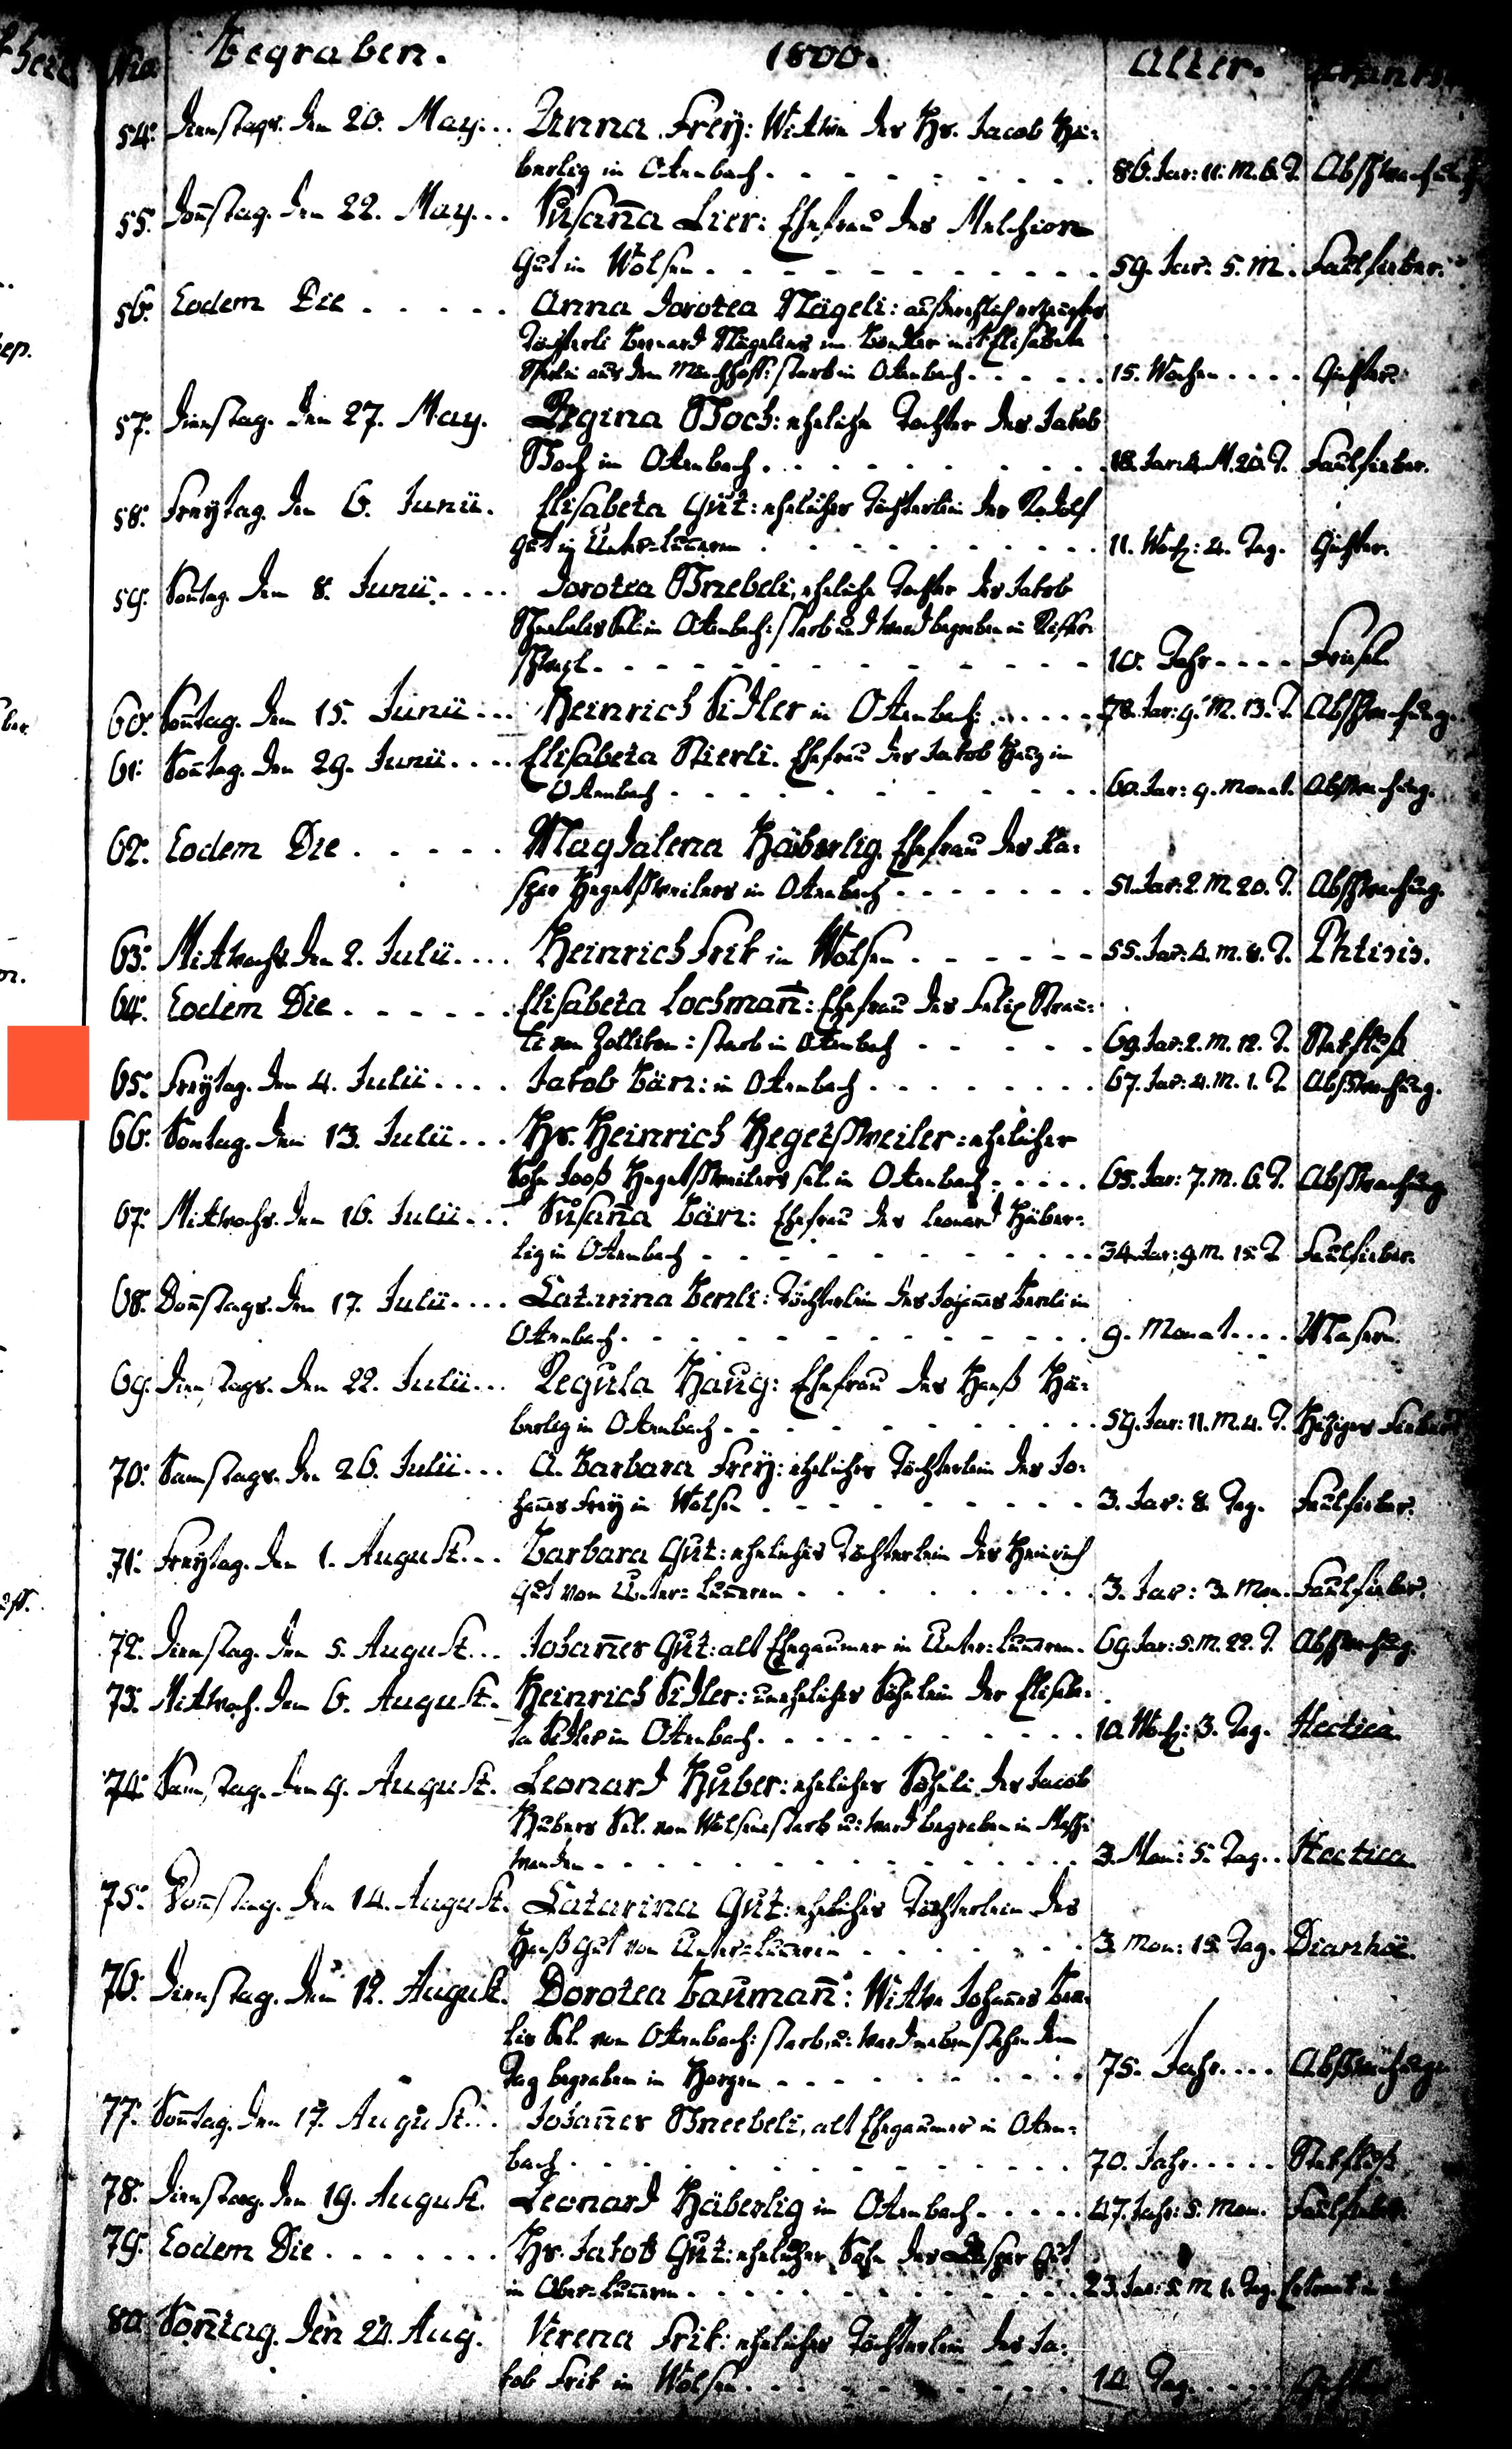 Begraben. 1800. Alter.
54. Dienstags. den 20. May... Anna Frey: Witwe des Hr. Jacob Hä-
berlig in Otenbach. 86. Jar: 11. M. 6. T. Abschwachung
55. Donstag. den 22. May... Susanna Lier: Ehefrau des Melchior
Gut in Wolsen. 59. Jar: 5. M. Faulfieber.
56. Eodem Die..... Anna Dorotea Nägeli: außerehlich erzeugtes
Töchterli Bernard Nägelins im mit Elisabeta
aus dem starb in Otenbach. 15. Wochen.... Gichter.
57. Dienstag. den 27. May. Regina Schoch: eheliche Tochter des Jakob
Schoch in Otenbach. 18. Jar: 4. M. 20. T. Faulfieber.
58. Freytag. den 6. Junii. Elisabeta Gut: eheliches Töchterlein des Rudolf
Gut in Unter-Lunnern. 11. Woch: 4. Tag. Gichter.
59. Sontag. den 8. Junii.... Dorotea Schneebeli, eheliche Tochter des Jakob
Schneebelis Sel. in Otenbach: starb und ward begraben in Riffer-
schweil. 10. Jahr.... Friesel.
60. Sontag. den 15. Junii... Heinrich Sidler in Otenbach. 78. Jar: 9. M. 13. T. Abschwachung.
61. Sontag. den 29. Junii.... Elisabeta Stierli. Ehefrau des Jakob Haug in
Otenbach. 60. Jar: 9. Monat. Abschwachung.
62. Eodem Die..... Magdalena Häberlig. Ehefrau des Ka-
spar Hegetschweilers in Otenbach. 51. Jar: 2. M. 20. T. Abschwachung.
63. Mittwochs. den 2. Julii.... Heinrich Frik in Wolsen. 55. Jar: 4. M. 8. T. Phtisis.
64. Eodem Die...... Elisabeta Lochmann: Ehefrau des Felix Streu-
li von Zollikon: starb in Otenbach 69. Jar: 2. M. 12. T. Stekfluß
65. Freytag. den 4. Julii.... Jakob Bär: in Otenbach. 67. Jar: 4. M. 1. T. Abschwachung.
66. Sontag. den 13. Julii... Hr. Heinrich Hegetschweiler: ehelicher
Sohn Jooß Hegetschweilers sel. in Otenbach. 65. Jar: 7. M. 6. T. Abschwachung
67. Mittwochs. den 16. Julii... Susanna Bär: Ehefrau des Leonard Häber-
lig in Otenbach. 34. Jar: 9. M. 15. T. Faulfieber.
68. Donstags. den 17. Julii.... Catarina Berli: Töchterlein des Johannes Berli in
Otenbach. 9. Monat.... Masern.
69. Dienstags. den 22. Julii... Regula Haug: Ehefrau des Hanß Hä-
berlig in Otenbach. 59. Jar: 11. M. 4. T. Hiziges Fieber
70. Samstags. den 26. Julii... A. Barbara Frey: eheliches Töchterlein des Jo-
hannes Frey in Wolsen. 3. Jar: 8. Tag. Faulfieber.
71. Freytag. den 1. August... Barbara Gut: eheliches Töchterlein des Heinrich
Gut von Unter-Lunnern. 3. Jar: 3. Mon. Faulfieber.
72. Dienstag. den 5. August... Johannes Gut: alt Ehegaumer in Unter-Lunnern. 69. Jar: 5. M. 22. T. Abschwachung.
73. Mittwoch. den 6. August. Heinrich Sidler: uneheliches Söhnlein der Elisabe-
ta Sidler in Otenbach. 10. Woch: 3. Tag. Hectica.
74. Samstag. den 9. August. Leonard Huber: eheliches Söhnli des Jacob
Hubers Sel. von Wolsen: starb u: ward begraben in Masch-
wanden. 3. Mon: 5. Tag.. Hectica.
75. Donstag. den 14. August. Catarina Gut: eheliches Töchterlein des
Hanß Gut von Unter-Lunnern. 3. Mon: 15. Tag. Diarrhöe.
76. Dienstag. den 12. August. Dorotea Baumann: Witwe Johannes Ber-
lis Sel. von Otenbach: starb, u: ward nebenstehendem
Tag begraben in Horgen. 75. Jahr.... Abschwachung
77. Sontag. den 17. August... Johannes Schneebeli, alt Ehegaumer in Oten-
bach. 70. Jahr..... Stekfluß
78. Dienstag. den 19. August. Leonard Häberlig in Otenbach..... 47. Jahr: 5. Mon. Faulfieber.
79. Eodem Die....... Hr. Jakob Gut: ehelicher Sohn des Caspar Gut
in Ober-Lunnern. 23. Jar: 5. M 1. Tag. Ertrank in
80. Sonntag. den 24. Aug. Verena Frik: eheliches Töchterlein des Ja-
kob Frik in Wolsen. 14. Tag.